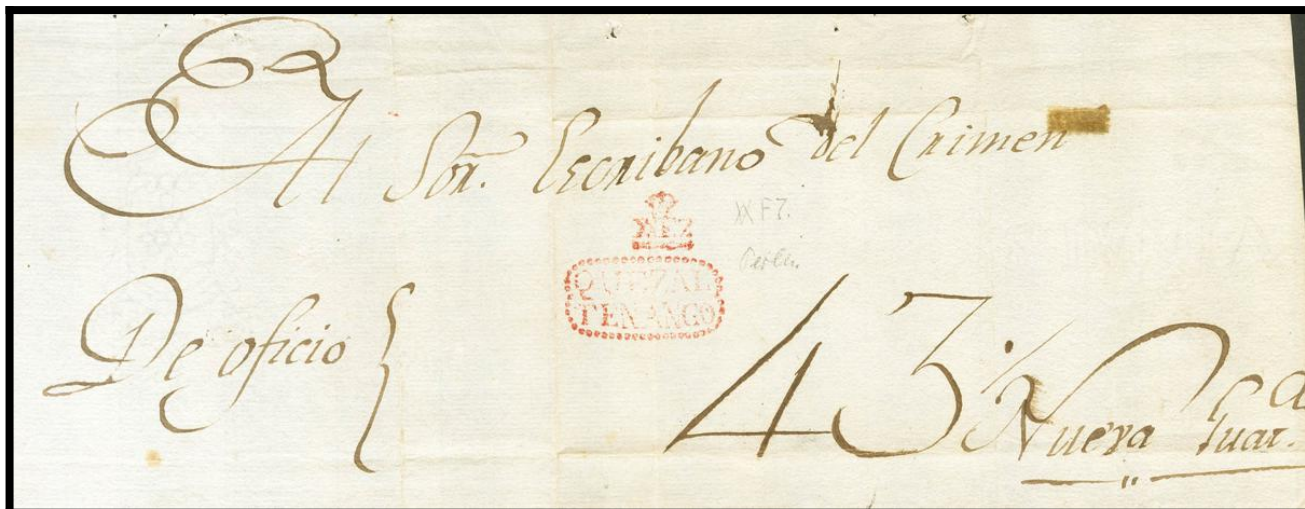 Al Sor. Escribano del Crimen
XX F7.
QUEZAL
TENANGO
De oficio
43
Nueva Guat.a